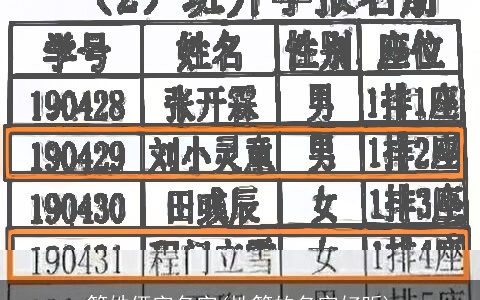 (2)班开学报名册
学号 姓名 性别 座位
190428 张开霖 男 1排1座
190429 刘小灵童 男 1排2座
190430 田彧辰 女 1排3座
190431 程门立雪 女 1排4座